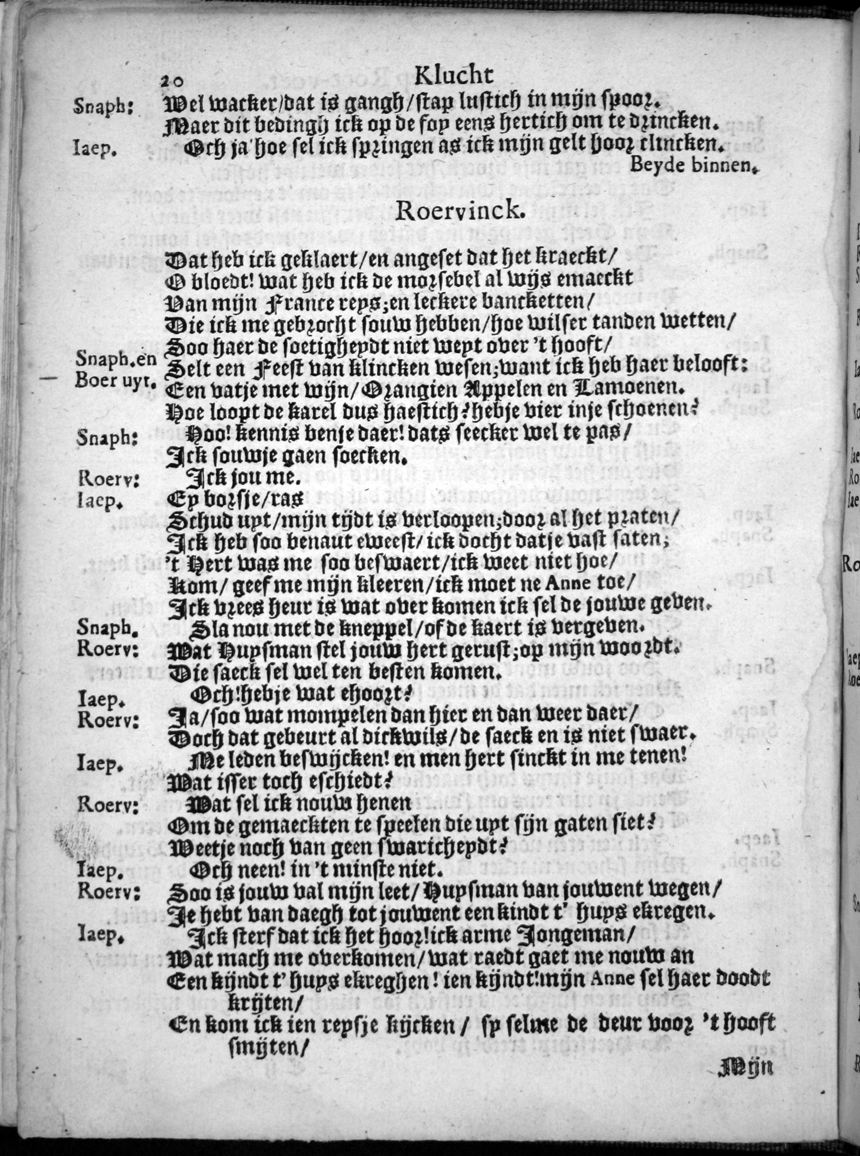 20 Klucht
Snaph: Wel wacker/dat is gangh/stap lustich in mijn spoor.
Maer dit bedingh ick op de fop eens hertich om te drincken.
Iaep. Och ja hoe sel ick springen as ick mijn gelt hoor clincken.
Beyde binnen.
Roervinck.
Dat heb ick geklaert/en angeset dat het kraeckt/
O bloedt! wat heb ick de morsebel al wijs emaeckt
Van mijn France reys;en leckere bancketten/
Die ick me gebrocht souw hebben/hoe wilser tanden wetten/
Soo haer de soetigheydt niet weyt over 't hooft/
Snaph.en Selt een Feest van klincken wesen;want ick heb haer belooft:
Boer uyt. Een vatje met wijn/Orangien Appelen en Lamoenen.
Hoe loopt de karel dus haestich?hebje vier inje schoenen?
Snaph: Hoo! kennis benje daer! dats seecker wel te pas/
Ick souwje gaen soecken.
Roerv: Ick jou me.
Iaep. Ey borsje/ras
Schud uyt/mijn tijdt is verloopen;door al het praten/
Ick heb soo benaut eweest/ick docht datje vast saten;
't Hert was me soo beswaert/ick weet niet hoe/
Kom/ geef me mijn kleeren/ick moet ne Anne toe/
Ick vrees heur is wat over komen ick sel de jouwe geven.
Snaph. Sla nou met de kneppel/of de kaert is vergeven.
Roerv: Wat Huysman stel jouw hert gerust;op mijn woordt.
Die saeck sel wel ten besten komen.
Iaep. Och!hebje wat ehoort?
Roerv: Ja/soo wat mompelen dan hier en dan weer daer/
Doch dat gebeurt al dickwils/de saeck en is niet swaer.
Iaep. Me leden beswijcken! en men hert sinckt in me tenen!
Wat isser toch eschiedt?
Roerv: Wat sel ick nouw henen
Om de gemaeckten te speelen die uyt sijn gaten siet?
Weetje noch van geen swaricheydt?
Iaep. Och neen! in 't minste niet.
Roerv: Soo is jouw val mijn leet/Huysman van jouwent wegen/
Je hebt van daegh tot jouwent een kindt t' huys ekregen.
Iaep. Ick sterf dat ick het hoor!ick arme Jongeman/
Wat mach me overkomen/wat raedt gaet me nouw an
Een kijndt t' huys ekreghen! ien kijndt!mijn Anne sel haer doodt
krijten/
En kom ick ien reysje kijcken / sy selme de deur voor 't hooft
smijten/
Mijn